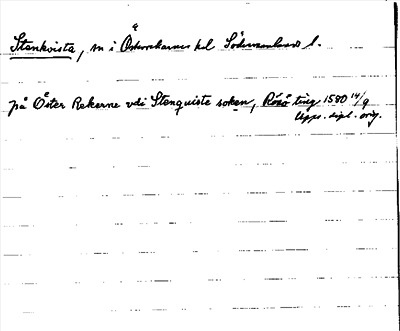 Stenkvista, sn i Österrekarnes hd Södermanlands l.
på Öster Rekerne vdi Stenquiste soken, Råså ting 1580 14/9
Upps. dipl. orig.